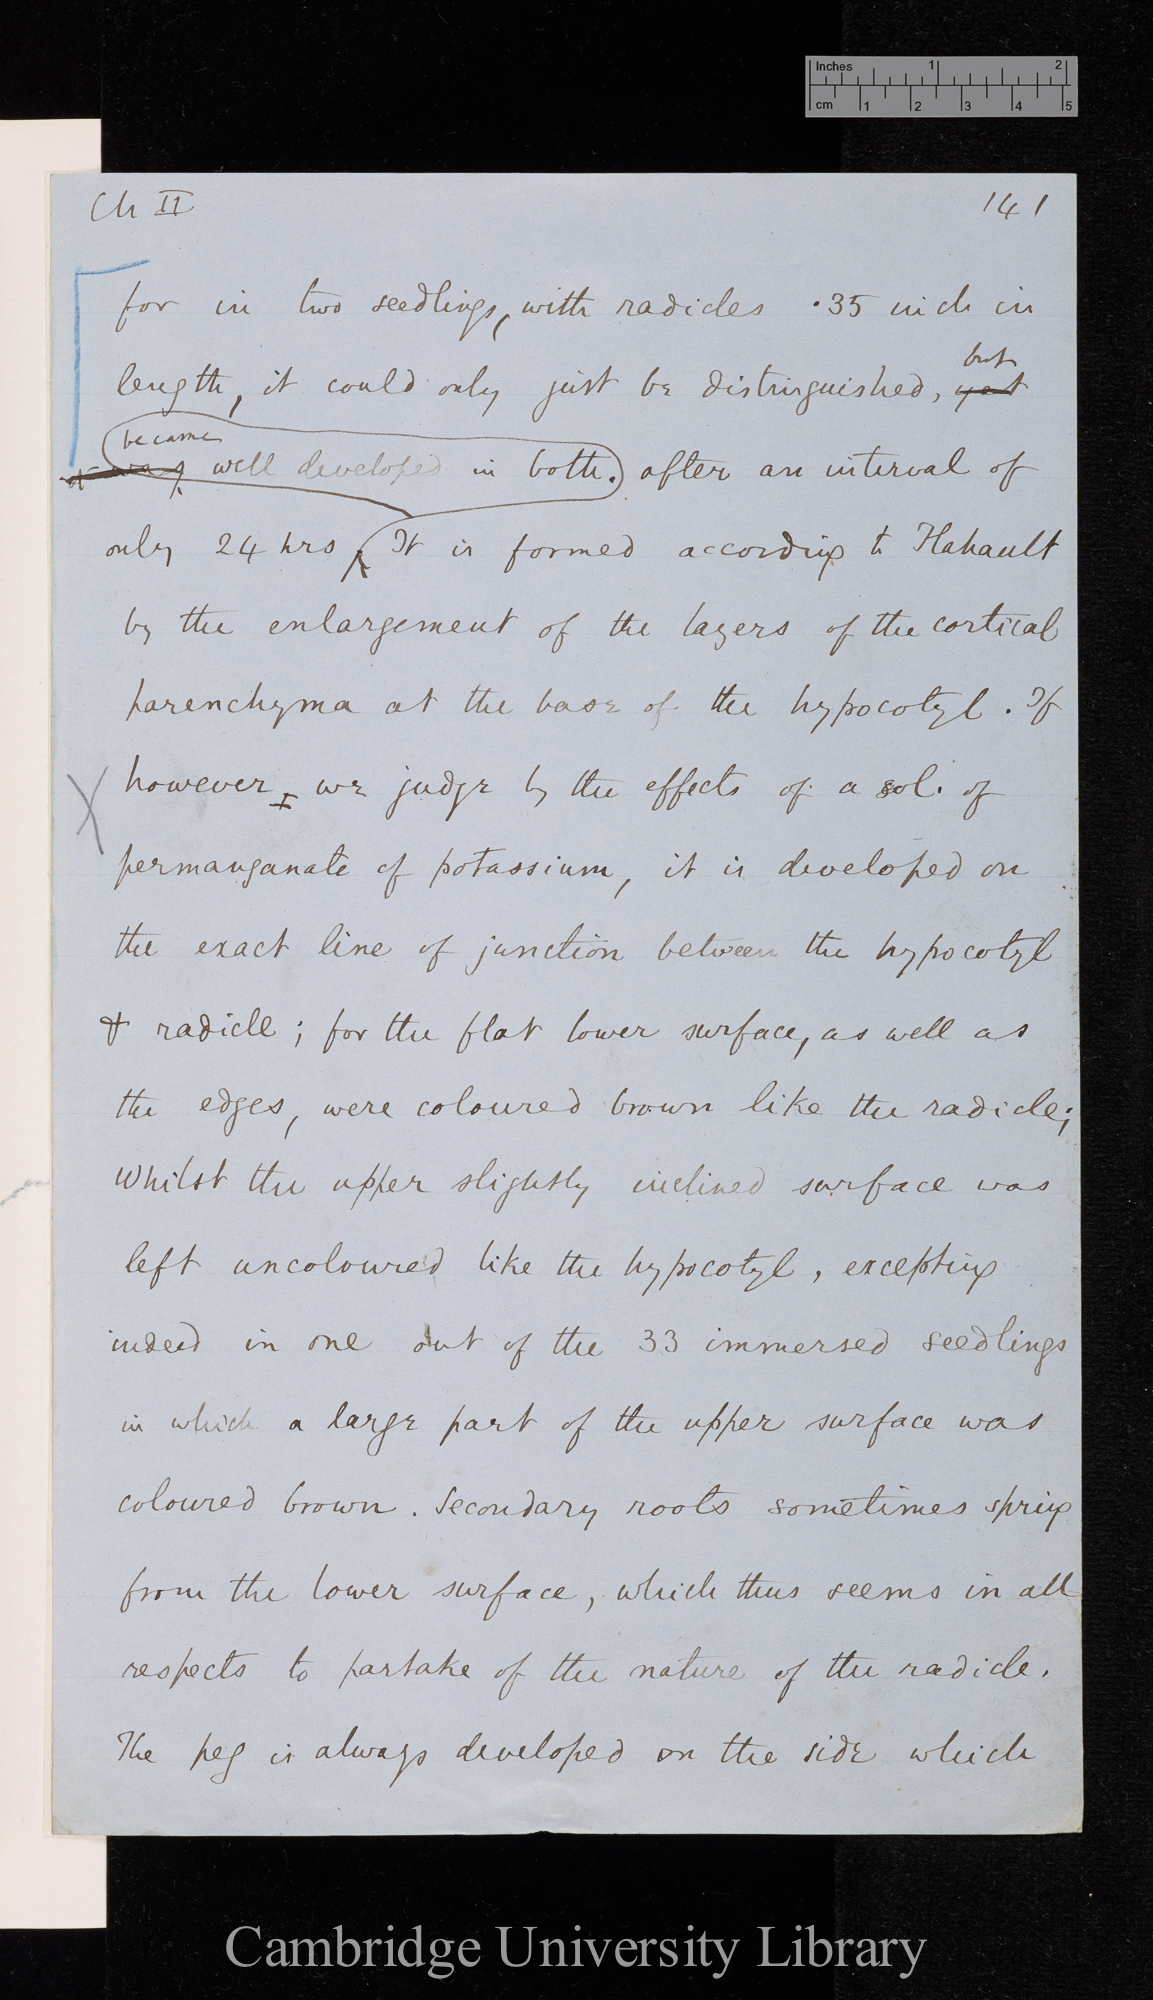 Inches 1 2
cm 1 2 3 4 5
Ch II 141
for in two seedlings, with radicles .35 inch in
length, it could only just be distinguished, yet but
became
well developed in both. after an interval of
only 24 hrs It is formed according to Flahault
by the enlargement of the layers of the cortical
parenchyma at the base of the hypocotyl. If
however, we judge by the effects of a sol. of
permanganate of potassium, it is developed on
the exact line of junction between the hypocotyl
& radicle; for the flat lower surface, as well as
the edges, were coloured brown like the radicle;
Whilst the upper slightly inclined surface was
left uncoloured like the hypocotyl, excepting
indeed in one out of the 33 immersed seedlings
in which a large part of the upper surface was
coloured brown. Secondary roots sometimes spring
from the lower surface, which thus seems in all
respects to partake of the nature of the radicle.
The peg is always developed on the side which
Cambridge University Library